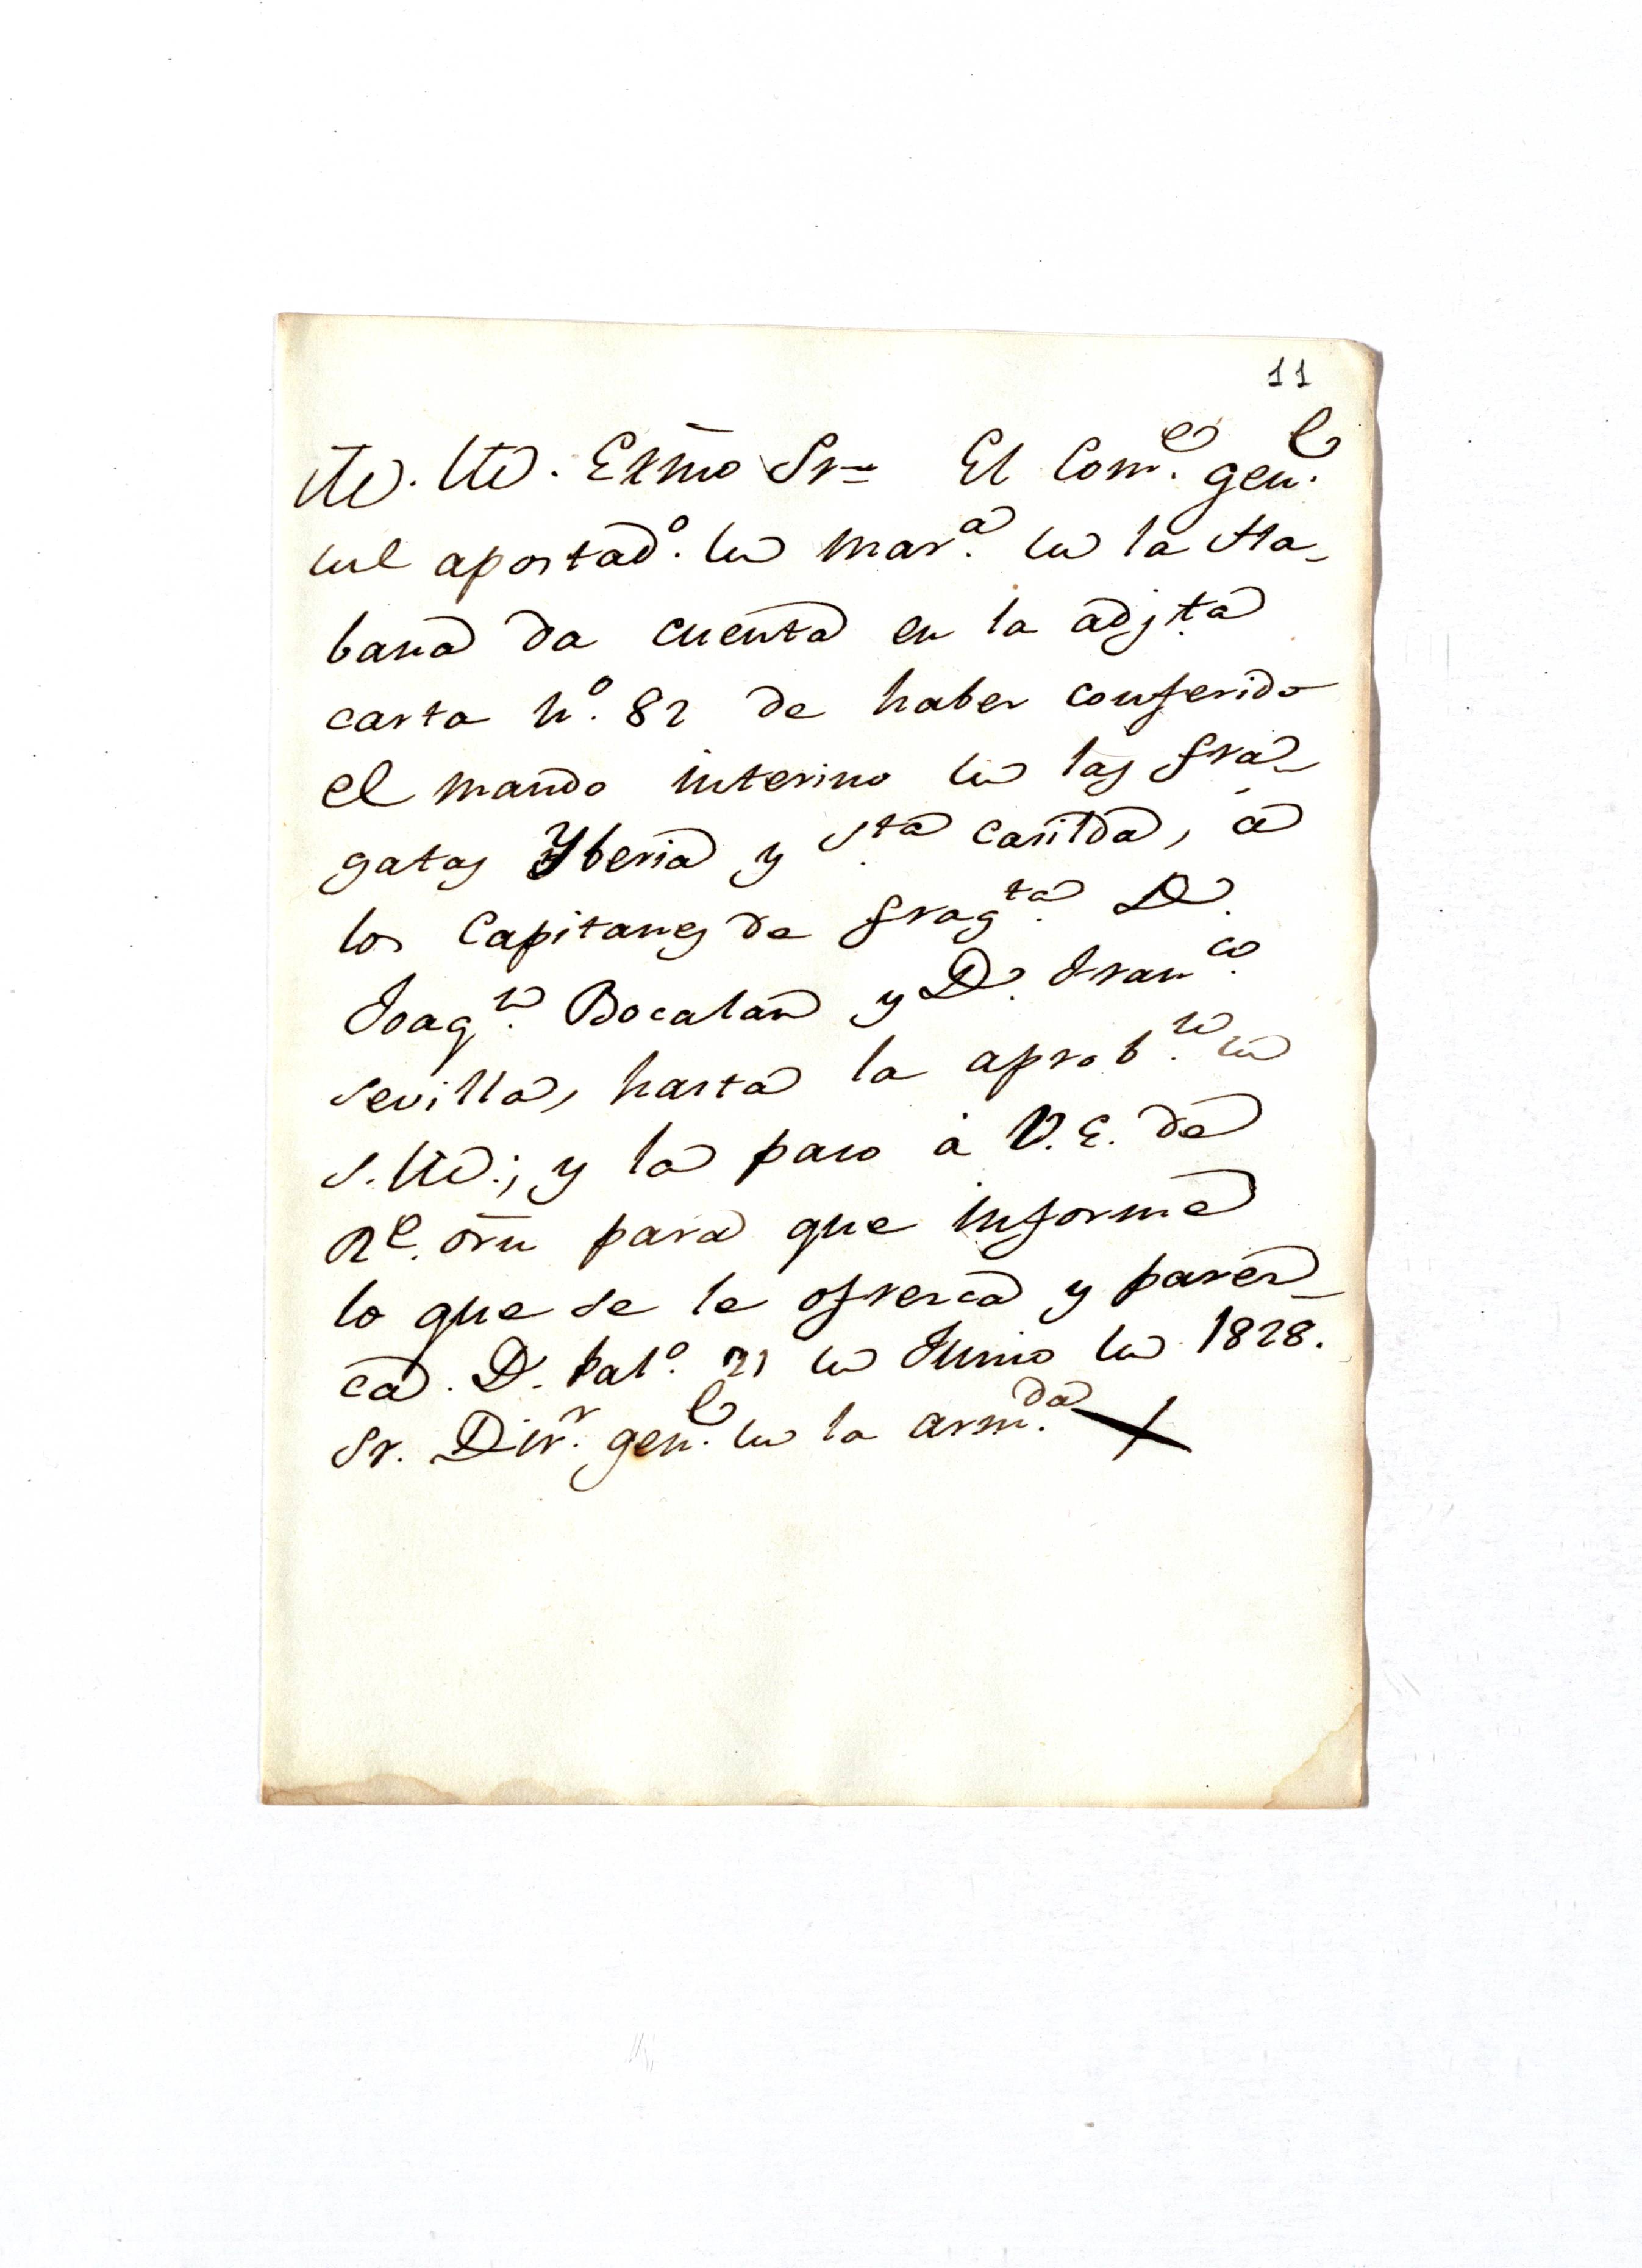 11
M. M. Exmo Sr= El Com.e gen.l
del apostad.o de mar.a de la Ha-
bana da cuenta en la adj.ta
carta n.o 82 de haber conferido
el mando interino de las fra-
gatas Yberia y S.ta Casilda, á
los Capitanes de frag.ta D.
Joaq.n Bocalan y D. Fran.co
Sevilla, hasta la aprob.n de
S.M.; y la paso á V.E. de
Rl. orn para que informe
lo que se le ofrezca y parez-
ca. D. Pal.o 21 de Junio de 1828.
Sr. Dir.r gen.l de la arm.da